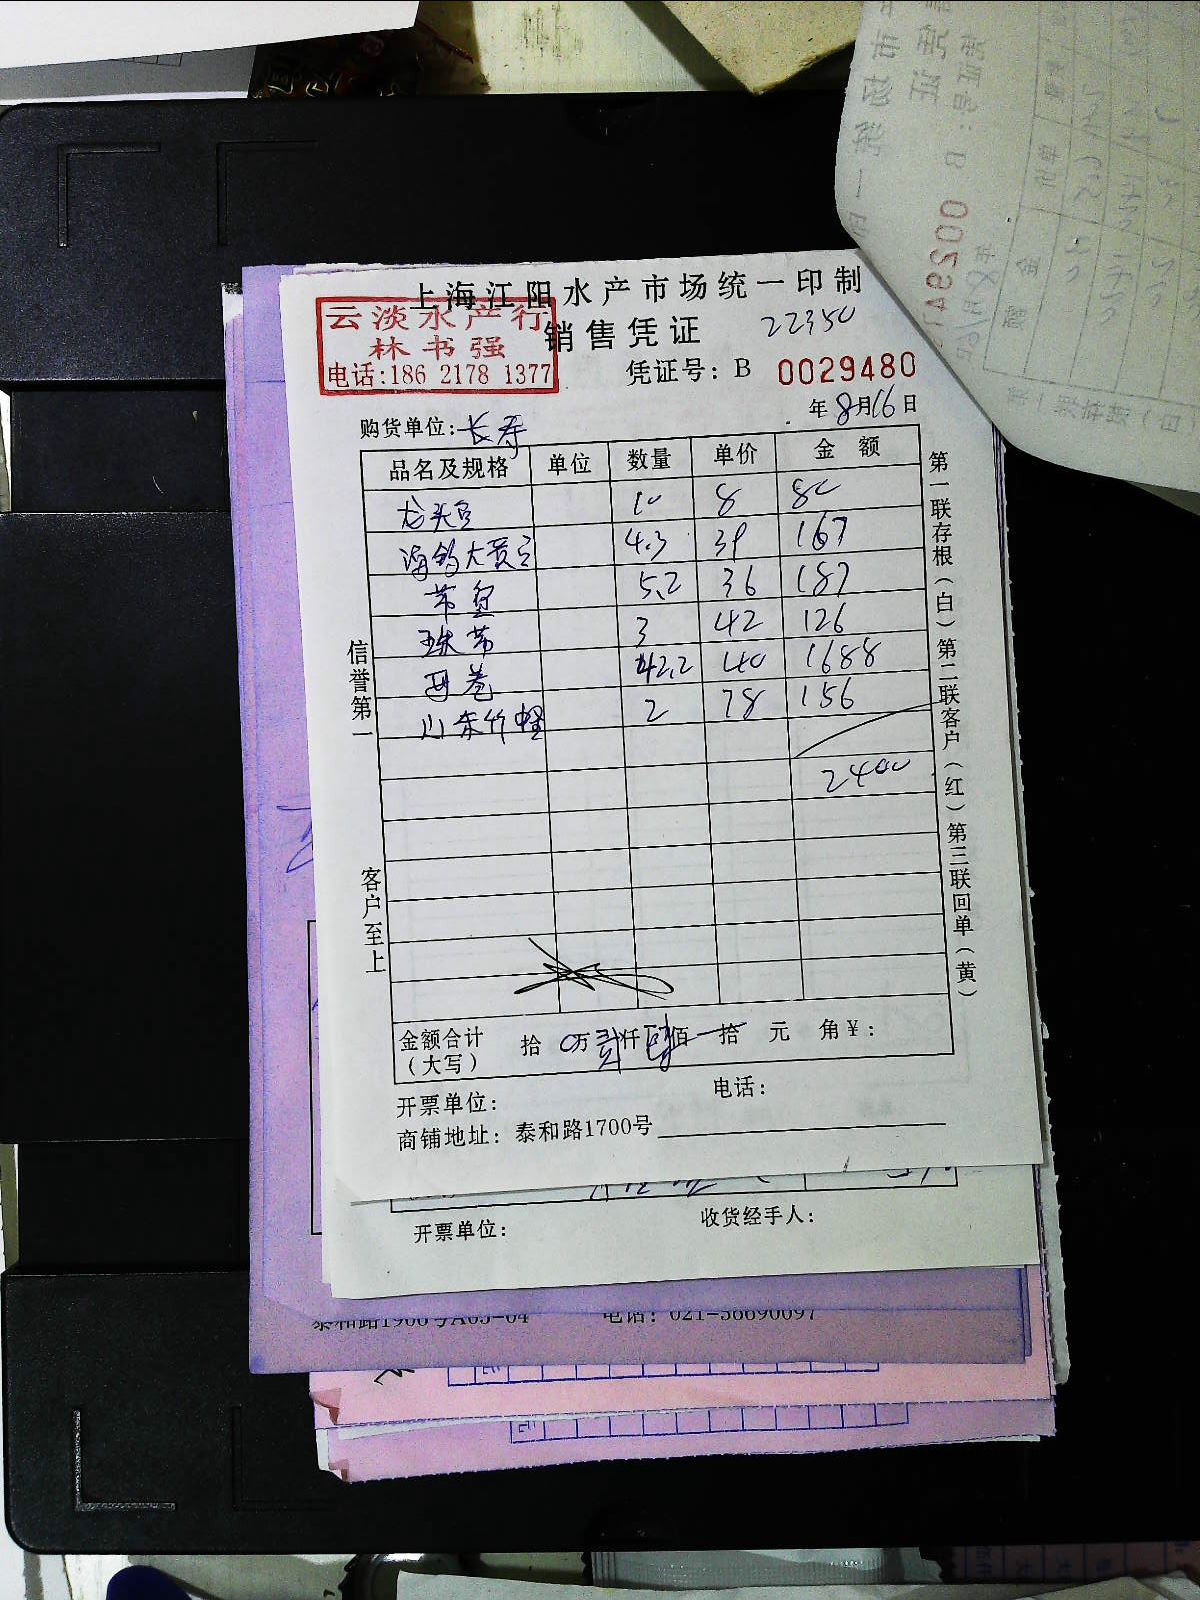 上海江阳水产市场统一印制
云淡水产行
林书强
电话:186 2178 1377
销售凭证 22350
凭证号: B 0029480
年8月16日
购货单位:长寿
品名及规格 单位 数量 单价 金额
龙头 10 8 80
海钓大黄 4.3 39 167
带 5.2 36 187
3 42 126
42.2 40 1688
山东竹蛏 2 78 156
2400
信誉第一
客户至上
第一联存根(白) 第二联客户(红) 第三联回单(黄)
金额合计(大写) 拾 0万贰仟肆佰 拾 元 角¥:
开票单位: 电话:
商铺地址: 泰和路1700号
开票单位: 收货经手人:
泰和路1900号A05-04 电话: 021-56690097